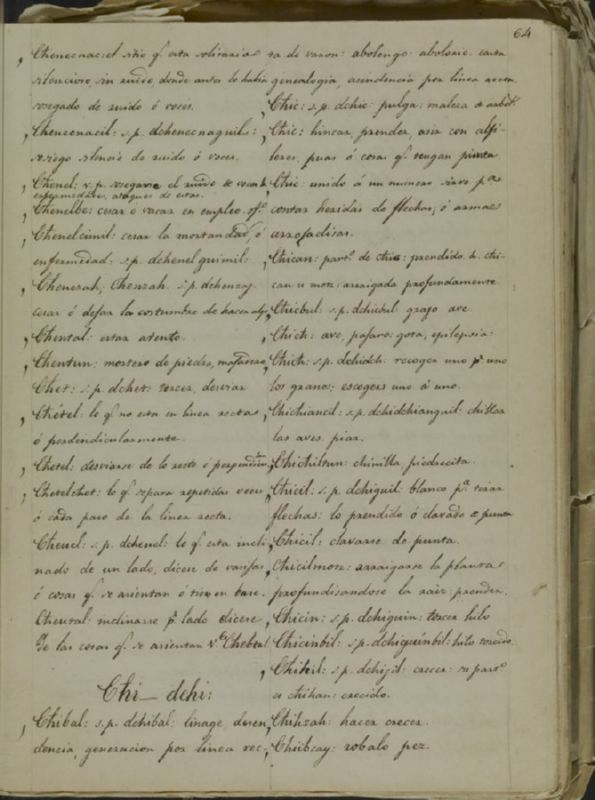 64
Cheneenac: el sitio q.e esta solitario
silencioso, sin ruido, donde antes le habia
sosegado de ruido ó voces.
Cheneenacil: s.p. dcheneenaguils:
sosiego silencio de ruido ó voces.
Chenel: v.p. sosegarse el ruido de voces
enfermedades, ataques de estas.
Chenelbe: cesar ó vacar en empleo, of.o
Chenelcimil: cesar la mortandad, ó
enfermedad: s.p. dchenelguimil:
Chenezah, Chenzah: s.p. dchenzaj
cesar ó dejar la costumbre de hacer algo
Chental: estar atento.
Chentun: mortero de piedra,
Chet: s.p. dchet: torcer,
Chetel: lo q.e no esta en linea recta
ó perdendicularmente.
Chetel: desviarse de lo recto ó
Chetelchet: lo q.e separa repetidas veces
ó cada paso de la linea recta.
Cheuel: s.p. dcheuel: lo q.e esta incli
nado de un lado, dicese de
ó cosas q.e se asientan ó tienen base.
inclinarse p.r lado dicese
de las cosas q.e se asientan v.e
Chi— dchi:
Chibal: s.p. dchibal: linage, desen
dencia, generacion por linea rec-
ta de varon: abolengo abolorio casta
genealogia, asendencia por linea
Chic: s.p. dchic: pulga: maleza
Chic: hincar, prender, asir con alfi-
leres, puas ó cosas q.e tengan punta
Chic: unido á un numero sirve p.a
contar heridas de flechas, ó armas
arrojadisas.
Chican: part.o de chic: prendido. h. chi-
can u motz: arraigada profundamente
Chicbul: s.p. dchicbul grajo ave
Chich: ave, pajaro: gota, epilepsia:
Chich: s.p. dchidch: recoger uno p.r uno
los granos; escogers uno á uno.
Chichiancil: s.p. dchidchianguil: chillar
las aves, piar.
Chichiltun: chinilla, piedrecita.
Chicil: s.p. dchiguil blanco p.a tirar
flechas: lo prendido ó clavado de punta
Chicil: clavarse de punta.
Chicilmotz: arraigarse la planta
profundisandose la raiz: prender.
Chicin: s.p. dchiguin: torcer hilo
Chicinbil: s.p. dchiguinbil: hilo torcido
crecer: su part.o
es chihan: crecido.
Chihzah: hacer crecer.
Chiibcay: robalo pez.